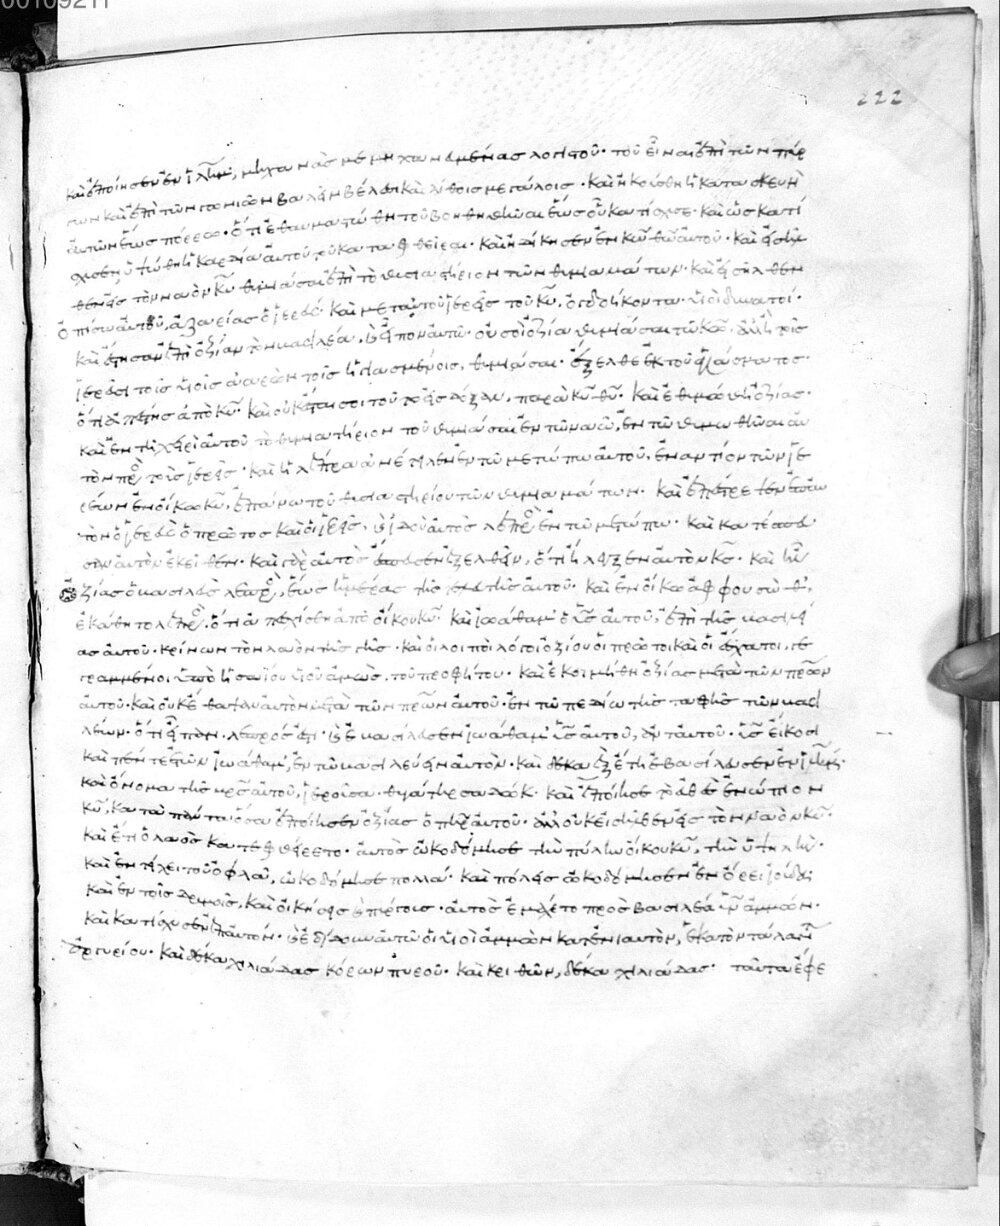 00109211
222
καὶ ἐποίησεν ἐν ἱλῆμ, μηχανὰς μεμηχανημένας λογιστοῦ· τοῦ εἶναι ἐπὶ τῶν πύρ
γων καὶ ἐπὶ τῶν γωνιῶν βάλλειν βέλεσι καὶ λίθοις μεγάλοις· καὶ ἠκούσθη ἡ κατασκευὴ
αὐτῶν ἕως πόρρω· ὅτι ἐθαυμαστώθη τοῦ βοηθηθῆναι ἕως οὗ κατίσχυσε· καὶ ὡς κατί
χυσεν ὑψώθη ἡ καρδία αὐτοῦ τοῦ καταφθεῖραι· καὶ ἠδίκησεν ἐν κῶ θῶ αὐτοῦ· καὶ εἰσῆλ
θεν εἰς τὸν ναὸν κῦ θυμιᾶσαι ἐπὶ τὸ θυσιαστήριον τῶν θυμιαμάτων· καὶ εἰσῆλθεν
ὀπίσω αὐτοῦ, ἀζαρίας ὁ ἱερεύς· καὶ μετ αὐτοῦ ἱερεῖς τοῦ κῦ, ὀγδοήκοντα· υἱοὶ δυνατοί·
καὶ ἔστησαν ἐπὶ ὀζίαν τὸν βασιλέα, καὶ εἶπον αὐτῶ· οὐ σοὶ ὀζία θυμιᾶσαι τῶ κῶ· ἀλλ ἢ τοῖς
ἱερεῦσι τοῖς υἱοῖς ἀαρὼν τοῖς ἡγιασμένοις, θυμιᾶσαι· ἔξελθε ἐκ τοῦ ἁγιάσματος·
ὅτι ἀπέστης ἀπὸ κῦ· καὶ οὐκ ἔσται σοι τοῦτο εἰς δόξαν, παρὰ κῦ θῦ· καὶ ἐθυμώθη ὀζίας·
καὶ ἐν τῆ χειρὶ αὐτοῦ τὸ θυμιατήριον τοῦ θυμιᾶσαι ἐν τῶ ναῶ, ἐν τῶ θυμωθῆναι αὐ
τὸν πρὸς τοὺς ἱερεῖς· καὶ ἡ λέπρα ἀνέτειλεν ἐν τῶ μετώπω αὐτοῦ, ἐναντίον τῶν ἱε
ρέων ἐν οἴκω κῦ, ἐπάνω τοῦ θυσιαστηρίου τῶν θυμιαμάτων· καὶ ἐπέστρεψεν ἐπ αὐ
τὸν ὁ ἱερεὺς ὁ πρῶτος καὶ οἱ ἱερεῖς, καὶ ἰδοὺ αὐτὸς λεπρὸς ἐν τῶ μετώπω· καὶ κατέσπευ
σαν αὐτὸν ἐκεῖθεν· καὶ γὰρ αὐτὸς ἔσπευσεν ἐξελθεῖν, ὅτι ἤλεγξεν αὐτὸν κς· καὶ ἦν
ὀζίας ὁ βασιλεὺς λεπρὸς, ἕως ἡμέρας τῆς τελευτῆς αὐτοῦ· καὶ ἐν οἴκω ἀφφουσὼθ,
ἐκάθητο λεπρὸς· ὅτι ἀπεσχίσθη ἀπὸ οἴκου κῦ· καὶ ἰωάθαμ ὁ υἱὸς αὐτοῦ, ἐπὶ τῆς βασιλεί
ας αὐτοῦ· κρίνων τὸν λαὸν τῆς γῆς· καὶ οἱ λοιποὶ λόγοι ὀζίου οἱ πρῶτοι καὶ οἱ ἔσχατοι, γε
γραμμένοι ὑπὸ ἡσαΐου υἱοῦ ἀμὼς, τοῦ προφήτου· καὶ ἐκοιμήθη ὀζίας μετὰ τῶν πρων
αὐτοῦ· καὶ οὐκ ἔθαψαν αὐτὸν μετὰ τῶν πρων αὐτοῦ· ἐν τῶ πεδίω τῆς ταφῆς τῶν βασι
λέων· ὅτι εἶπον, λεπρός ἐστι· καὶ ἐβασίλευσεν ἰωάθαμ υἱὸς αὐτοῦ, ἀντ αὐτοῦ· υἱὸς εἴκοσι
καὶ πέντε ἐτῶν ἰωάθαμ, ἐν τῶ βασιλεύειν αὐτὸν· καὶ δέκα ἓξ ἔτη ἐβασίλευσεν ἐν ἱλῆμ·
καὶ ὄνομα τῆς μρς αὐτοῦ, ἱεροῦσα· θυγάτηρ σαδώκ· καὶ ἐποίησε τὸ εὐθὲς ἐνώπιον
κῦ, κατὰ πάντα ὅσα ἐποίησεν ὀζίας ὁ πηρ αὐτοῦ· ἀλλ οὐκ εἰσῆλθεν εἰς τὸν ναὸν κῦ·
καὶ ἔτι ὁ λαὸς κατεφθείρετο· αὐτὸς ὠκοδόμησε τὴν πύλην οἴκου κῦ, τὴν ὑψηλήν·
καὶ ἐν τείχει τοῦ ὀφλὰ, ὠκοδόμησε πολλά· καὶ πόλεις ὠκοδόμησεν ἐν ὄρει ἰούδα,
καὶ ἐν τοῖς δρυμοῖς, καὶ οἰκήσεις καὶ πύργους· αὐτὸς ἐμαχέσατο πρὸς βασιλέα υἱῶν ἀμμών·
καὶ κατίσχυσεν ἐπ αὐτόν· καὶ ἐδίδουν αὐτῶ οἱ υἱοὶ ἀμμὼν κατ ἐνιαυτὸν, ἑκατὸν τάλαντα
ἀργυρίου· καὶ δέκα χιλιάδας κόρων πυροῦ· καὶ κριθῶν, δέκα χιλιάδας· ταῦτα ἔφε